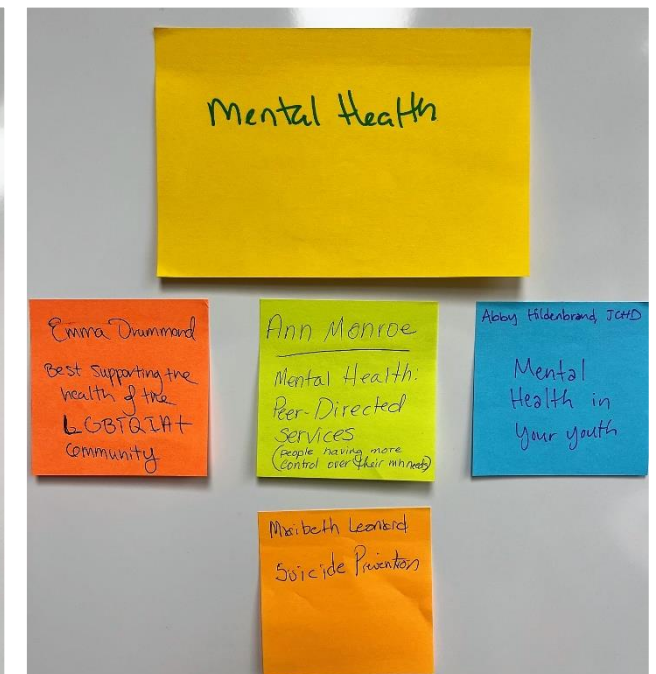 Mental Health
Emma Drummond
Best Supporting the
health of the
LGBTQIA+
Community
Ann Monroe
Mental Health:
Peer-Directed
Services
(people having more
control over their mh needs)
Abby Hildenbrand, JCHD
Mental
Health in
Your youth
Maribeth Leonard
Suicide Prevention